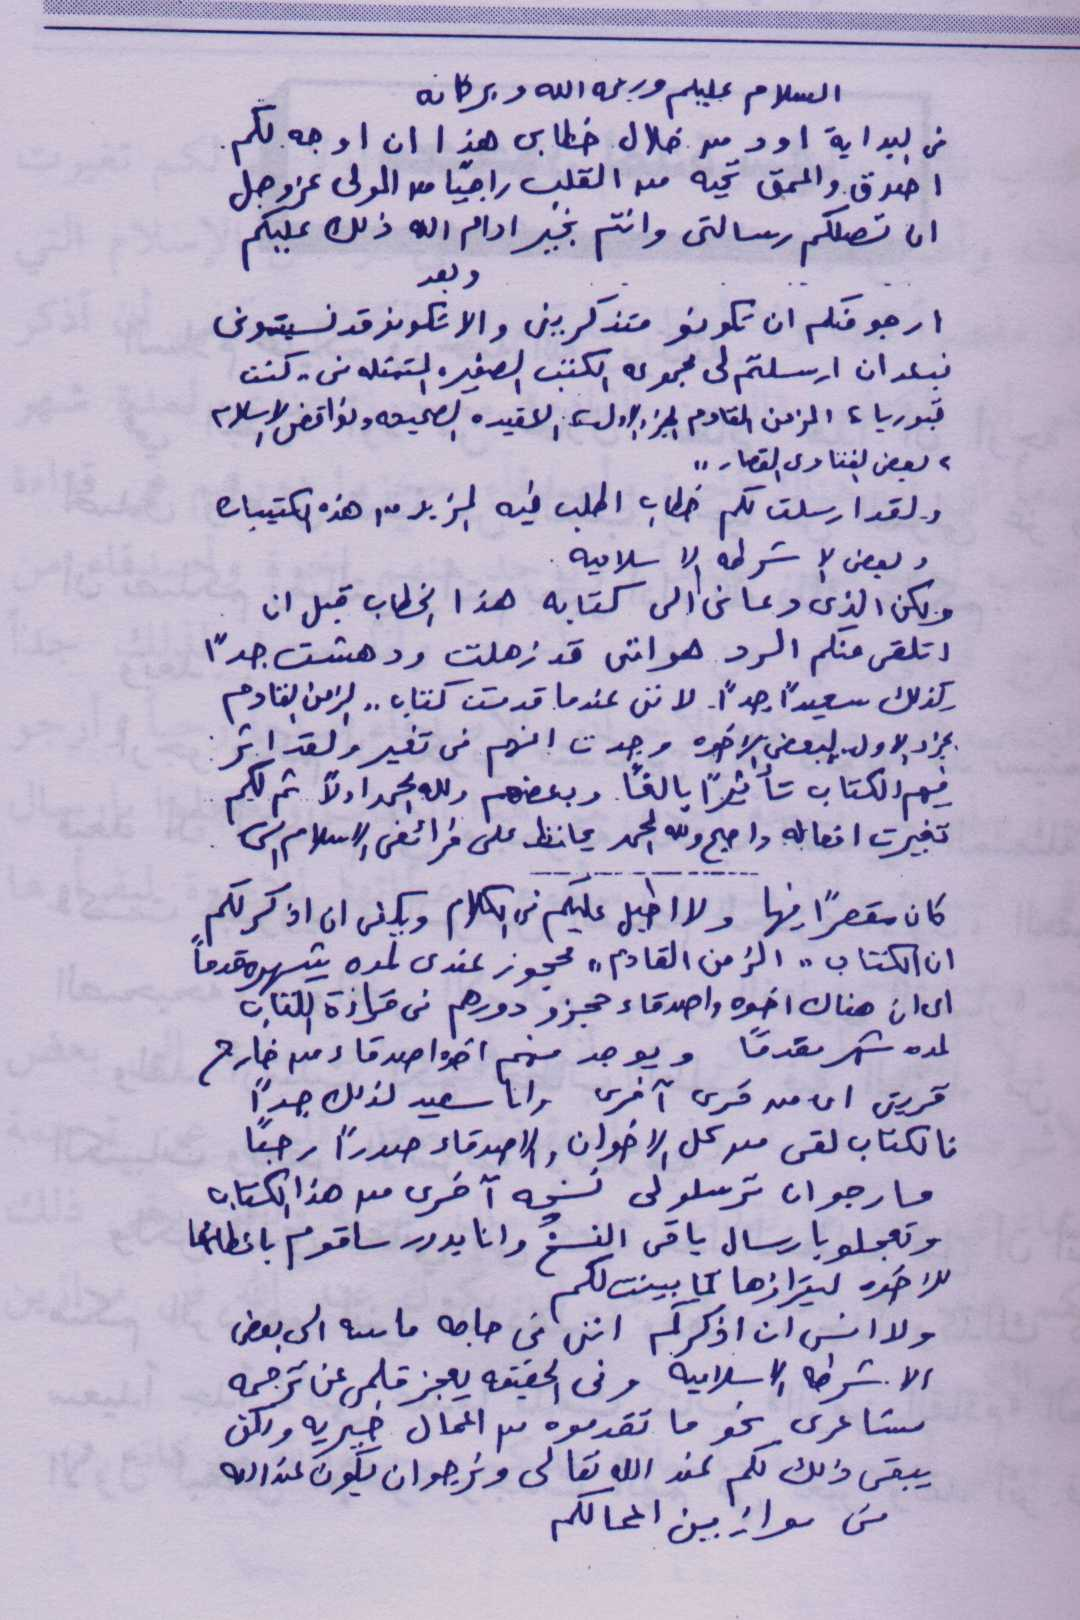 السلام عليكم ورحمة الله وبركاته
فى البداية اود من خلال خطابى هذا ان اوجه لكم
اصدق واعمق تحيه من القلب راجيًا من المولى عز وجل
ان تصلكم رسالتى وانتم بخير ادام الله ذلك عليكم
وبعد
ارجو منكم ان تكونو متذكرينى والا تكونو قد نسيتونى
فبعد ان ارسلتم لى مجموعه الكتب الصغيره المتمثله فى ,, كنت
قبوريا ، الزمن القادم الجزء الاول ، العقيده الصحيحه ونواقض الاسلام
، بعض الفتاوى القصار ,,
ولقد ارسلت لكم خطاب اطلب فيه المزيد من هذه الكتيبات
وبعض الاشرطه الاسلاميه
ولكن الذى دعانى الى كتابه هذا الخطاب قبل ان
اتلقى منكم الرد هو اننى قد زهلت ودهشت جدًا
كذلك سعيدًا جدًا. لاننى عندما قدمت كتاب ,, الزمن القادم
جزء الاول لبعض الاخوه وجدت انهم فى تغير ولقد اثر
فيهم الكتاب تأثيرًا بالغًا. وبعضهم ولله الحمد اولاً ثم لكم
تغيرت افعاله واصبح ولله الحمد يحافظ على فرائض الاسلام التى
كان مقصرًا فيها ولا اطيل عليكم فى الكلام ويكفى ان اذكر لكم
ان الكتاب ,, الزمن القادم ,, محجوز عندى لمده شهر قدماً
اى ان هناك اخوه واصدقاء حجزو دورهم فى قراءة الكتاب
لمده شهر مقدمًا ويوجد منهم اخوه اصدقاء من خارج
قريتى اى من قرى آخرى وانا سعيد لذلك جدًا
فالكتاب لقى من كل الاخوان والاصدقاء صدرًا رحبًا
فارجو ان ترسلو لى نسخه آخرى من هذا الكتاب
وتعجلو بارسال باقى النسخ وانا بدورى ساقوم باعطائها
للاخوه ليقرائوها كما بينت لكم
ولا انسى ان اذكركم اننى فى حاجه ماسه الى بعض
الاشرطه الاسلاميه وفى الحقيقه يعجز قلمى عن ترجمه
مشاعرى نحو ما تقدموه من اعمال خيريه ولكن
يبقى ذلك لكم عند الله تعالى ونرجو ان يكون عند الله
فى موازين اعمالكم